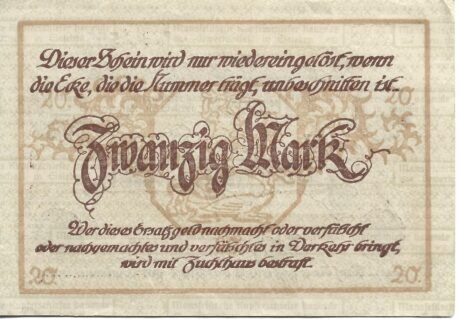 Dieser Schein wird nur wiedereingelöst, wenn
die Ecke, die die Nummer trägt, unbeschnitten ist.
20.
20
Zwanzig Mark
Wer dieses Ersatzgeld nachmacht oder verfälscht
oder nachgemachtes und verfälschtes in Verkehr bringt,
wird mit Zuchthaus bestraft.
20.
20.